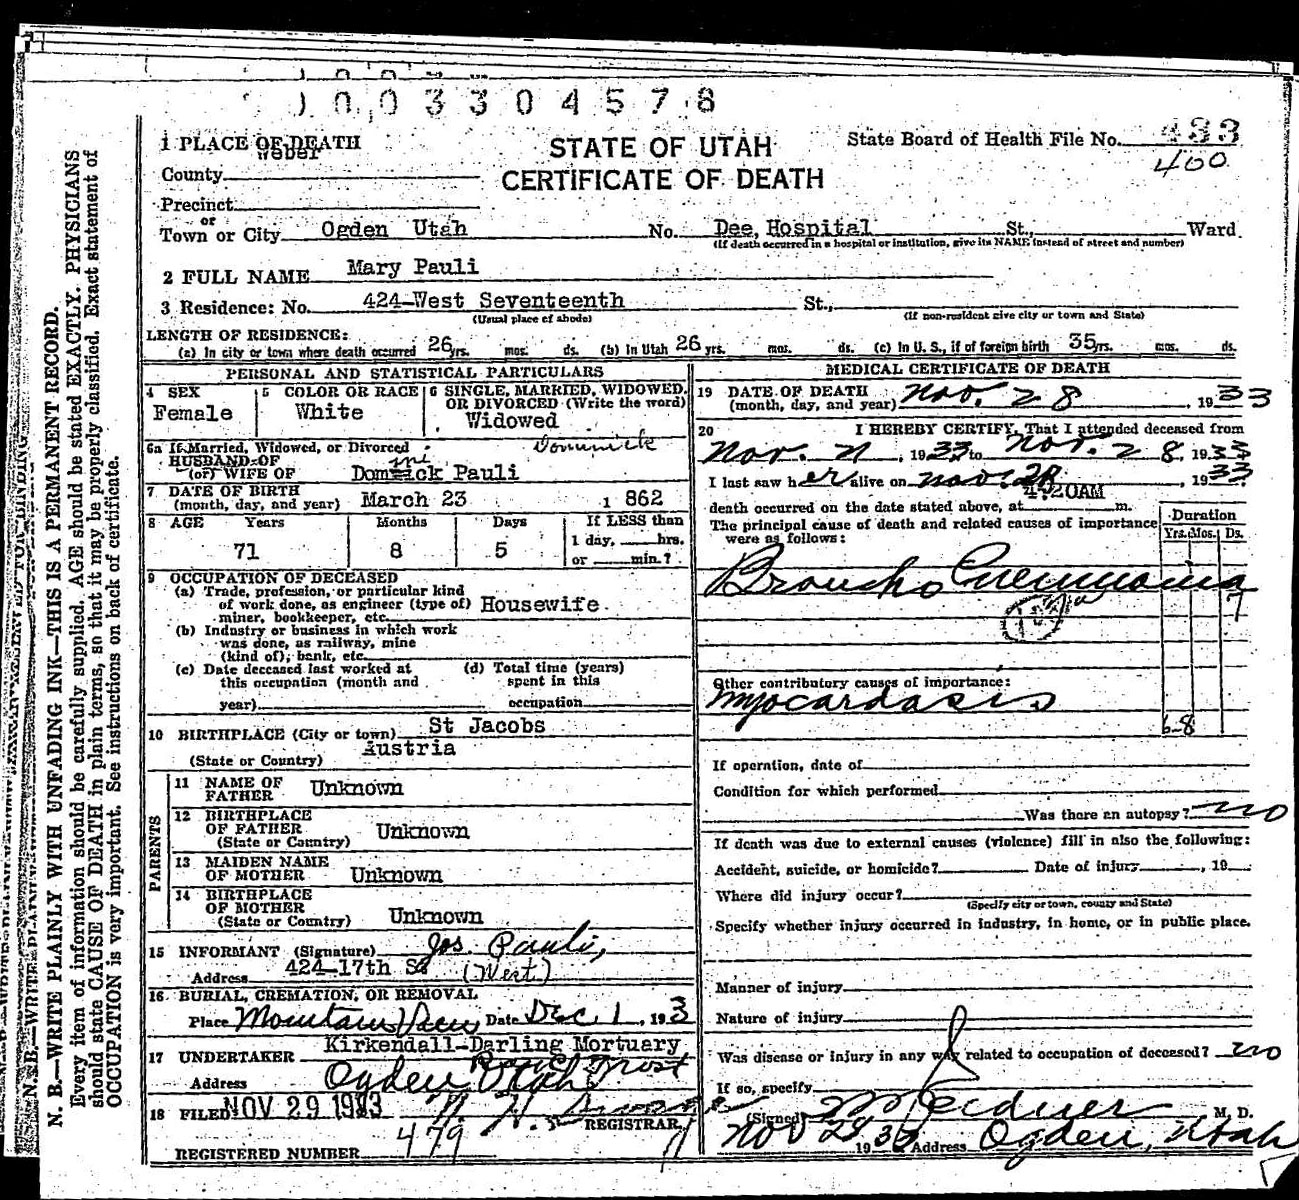 1003304578
1 PLACE OF DEATH
Weber
STATE OF UTAH
CERTIFICATE OF DEATH
State Board of Health File No. 433
400
County
Precinct
or
Town or City Ogden Utah No. Dee Hospital St., Ward
(If death occurred in a hospital or institution, give its NAME instead of street and number)
2 FULL NAME Mary Pauli
3 Residence: No. 424-West Seventeenth St.,
(Usual place of abode) (If non-resident give city or town and State)
LENGTH OF RESIDENCE:
(a) In city or town where death occurred 26 yrs. mos. ds. (b) In Utah 26 yrs. mos. ds. (c) In U. S., if of foreign birth 35 yrs. mos. ds.
PERSONAL AND STATISTICAL PARTICULARS
4 SEX
Female
5 COLOR OR RACE
White
6 SINGLE, MARRIED, WIDOWED, OR DIVORCED (Write the word)
Widowed
6a If Married, Widowed, or Divorced Dominick
HUSBAND OF
(or) WIFE OF Dominick Pauli
7 DATE OF BIRTH
(month, day, and year) March 23 1862
8 AGE Years Months Days If LESS than
71 8 5 1 day, hrs.
or min.?
9 OCCUPATION OF DECEASED
(a) Trade, profession, or particular kind
of work done, as engineer (type of) Housewife
miner, bookkeeper, etc.
(b) Industry or business in which work
was done, as railway, mine
(kind of), bank, etc.
(c) Date deceased last worked at (d) Total time (years)
this occupation (month and spent in this
year) occupation
10 BIRTHPLACE (City or town) St Jacobs
Austria
(State or Country)
PARENTS
11 NAME OF
FATHER Unknown
12 BIRTHPLACE
OF FATHER Unknown
(State or Country)
13 MAIDEN NAME
OF MOTHER Unknown
14 BIRTHPLACE
OF MOTHER Unknown
(State or Country)
15 INFORMANT (Signature) Jos. Pauli,
Address 424-17th St (West)
16 BURIAL, CREMATION, OR REMOVAL
Place Mountain View Date Dec 1, 193
Kirkendall-Darling Mortuary
17 UNDERTAKER
Address Ogden Utah
18 FILED NOV 29 1933
REGISTRAR
REGISTERED NUMBER 479
MEDICAL CERTIFICATE OF DEATH
19 DATE OF DEATH
(month, day, and year) Nov. 28, 1933
20 I HEREBY CERTIFY, That I attended deceased from
Nov. 21, 1933 to Nov. 28, 1933
I last saw her alive on Nov. 28, 1933
4:20AM
death occurred on the date stated above, at m.
The principal cause of death and related causes of importance
were as follows:
Duration
Yrs. Mos. Ds.
Broncho Pneumonia
7
Other contributory causes of importance:
Myocardosis
6-8
If operation, date of
Condition for which performed
Was there an autopsy? no
If death was due to external causes (violence) fill in also the following:
Accident, suicide, or homicide? Date of injury , 19
Where did injury occur?
(Specify city or town, county and State)
Specify whether injury occurred in industry, in home, or in public place.
Manner of injury
Nature of injury
Was disease or injury in any way related to occupation of deceased? no
If so, specify
(Signed) M. D.
Nov 28 1933 Address Ogden, Utah
N. B.—WRITE PLAINLY WITH UNFADING INK—THIS IS A PERMANENT RECORD.
Every item of information should be carefully supplied. AGE should be stated EXACTLY. PHYSICIANS
should state CAUSE OF DEATH in plain terms, so that it may be properly classified. Exact statement of
OCCUPATION is very important. See instructions on back of certificate.